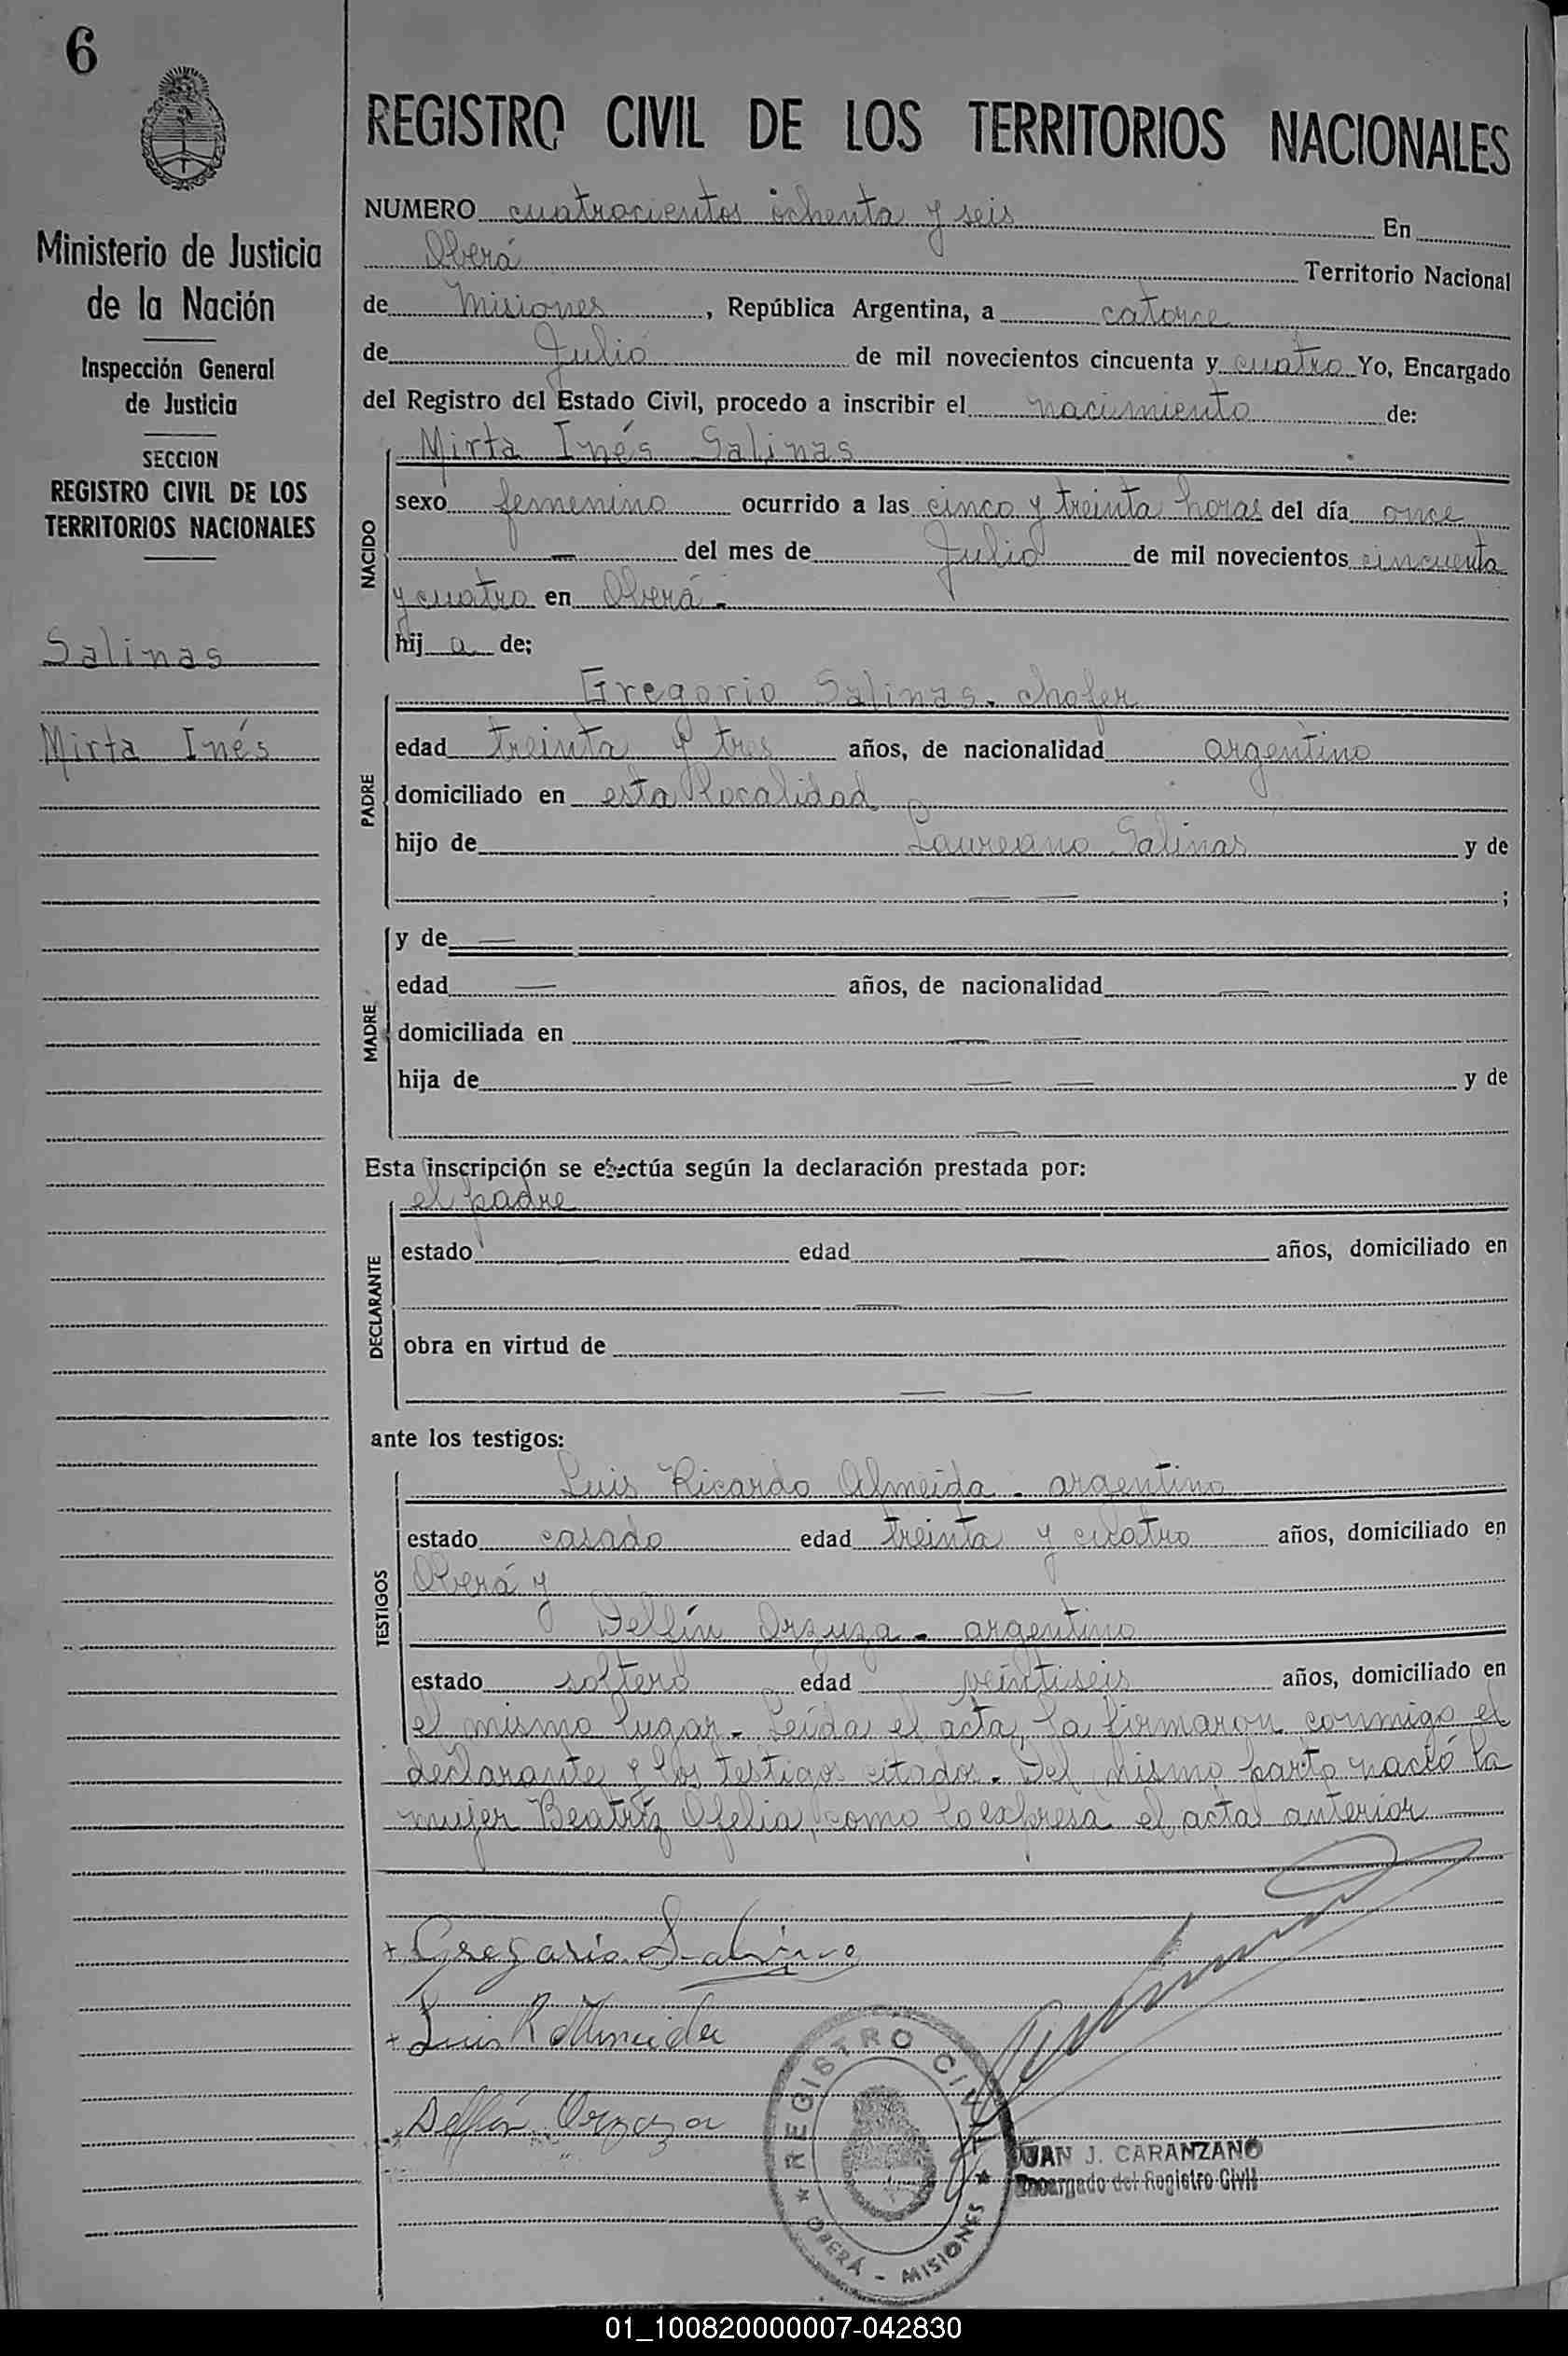 6
REGISTRO CIVIL DE LOS TERRITORIOS NACIONALES
Ministerio de Justicia
de la Nación
Inspección General
de Justicia
SECCION
REGISTRO CIVIL DE LOS
TERRITORIOS NACIONALES
Salinas
Mirta Inés
NUMERO cuatrocientos ochenta y seis En
Oberá Territorio Nacional
de Misiones, República Argentina, a catorce
de Julio de mil novecientos cincuenta y cuatro Yo, Encargado
del Registro del Estado Civil, procedo a inscribir el nacimiento de:
NACIDO
Mirta Inés Salinas
sexo femenino ocurrido a las cinco y treinta horas del día once
— del mes de Julio de mil novecientos cincuenta
y cuatro en Oberá -
hij a de;
PADRE
Gregorio Salinas - chofer
edad treinta y tres años, de nacionalidad argentino
domiciliado en esta localidad
hijo de Laureano Salinas y de
— — ;
MADRE
y de —
edad — años, de nacionalidad —
domiciliada en — —
hija de — — y de
—
Esta inscripción se efectúa según la declaración prestada por:
DECLARANTE
el padre
estado — edad — años, domiciliado en
—
obra en virtud de
— —
ante los testigos:
TESTIGOS
Luis Ricardo Almeida - argentino
estado casado edad treinta y cuatro años, domiciliado en
Oberá y
Delfín Orzuza - argentino
estado soltero edad veintiseis años, domiciliado en
el mismo lugar - Leída el acta, la firmaron conmigo el
declarante y los testigos citados. Del mismo parto nació la
mujer Beatríz Ofelia, como lo expresa el acta anterior —
+ Gregorio Salinas
+ Luis R Almeida
Delfín Orzuza
REGISTRO CIVIL
OBERÁ - MISIONES
JUAN J. CARANZANO
Encargado del Registro Civil
01_100820000007-042830